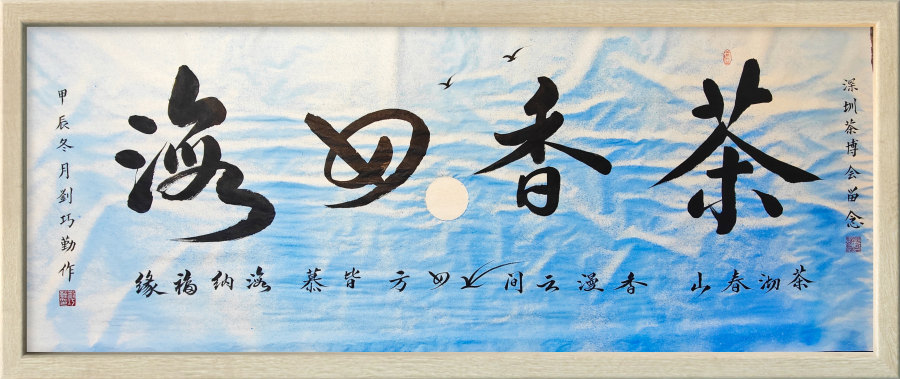 深圳茶博会留念
茶香四海
茶沏春山 香漫云间 四方皆慕 海纳福缘
甲辰冬月劉巧勤作